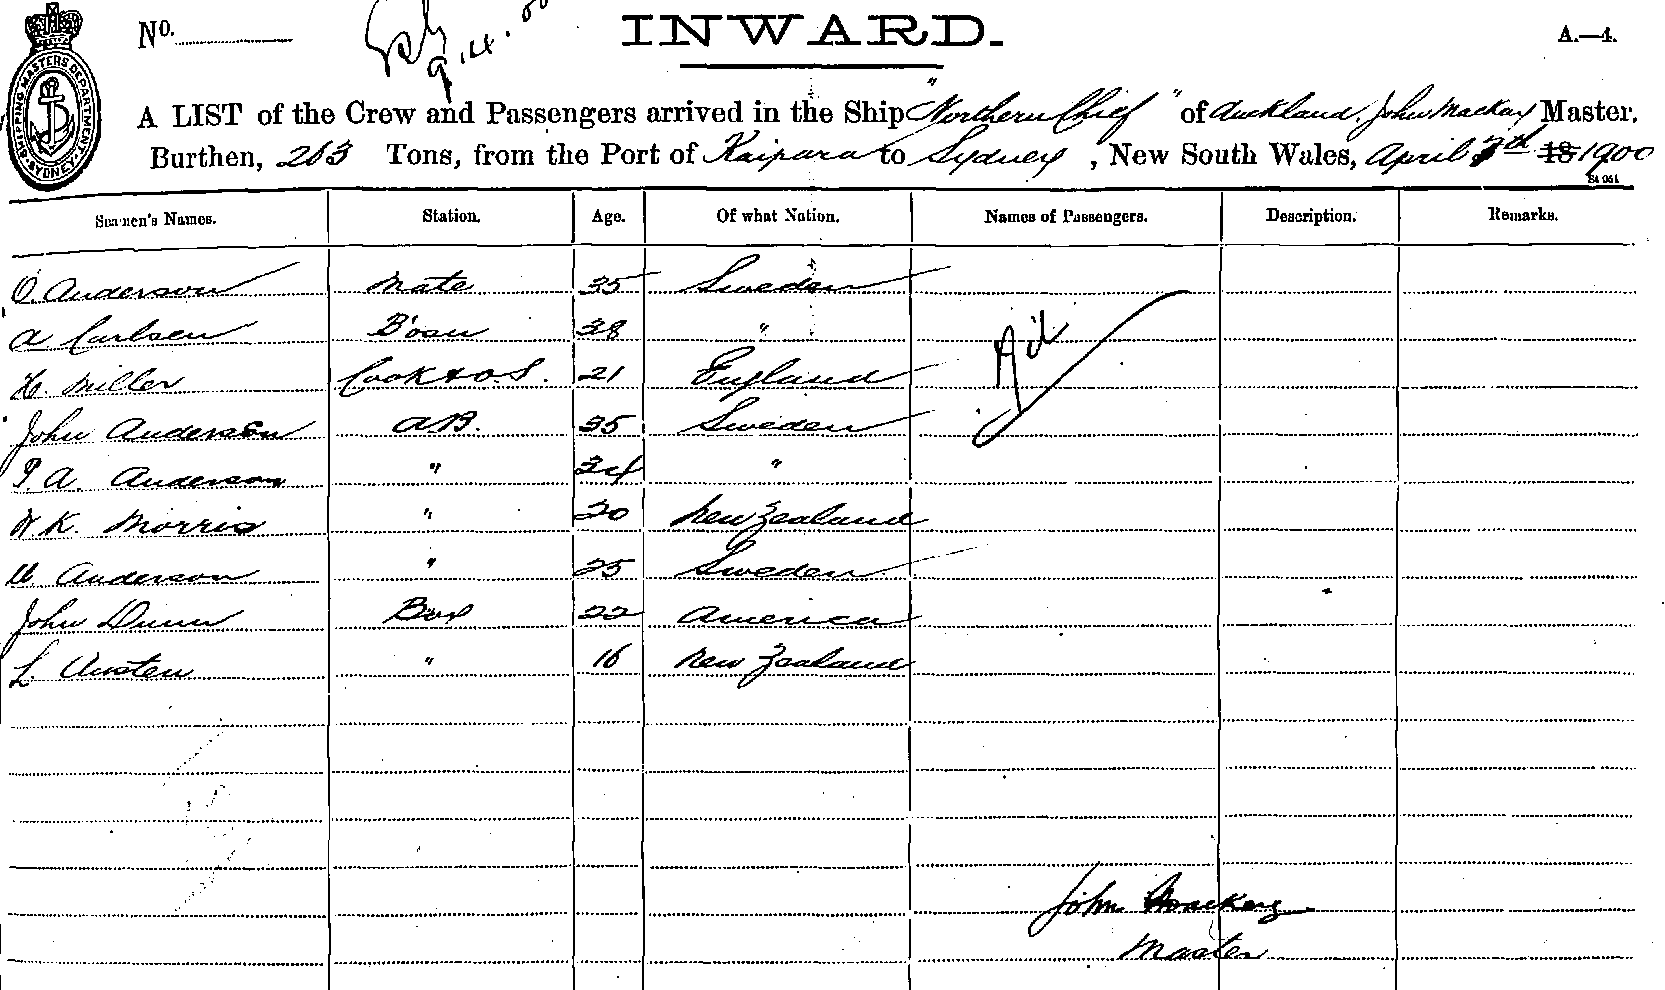 No.
9.4.00
INWARD.
A.—4.
SHIPPING MASTERS DEPARTMENT SYDNEY
A LIST of the Crew and Passengers arrived in the Ship "Northern Chief" of Auckland, John Mackay Master,
Burthen, 263 Tons, from the Port of Kaipara to Sydney, New South Wales, April 7th 18 1900
Seamen's Names. Station. Age. Of what Nation. Names of Passengers. Description. Remarks.
O Anderson Mate 35 Sweden
A Carlsen B'osn 38 "
H. Miller Cook & O.S. 21 England
Nil
John Anderson AB. 35 Sweden
P.A. Anderson " 34 "
W K. Morris " 20 New Zealand
Anderson " 25 Sweden
John Dunn Boy 22 America
L. Austen " 16 New Zealand
John Mackay
Master